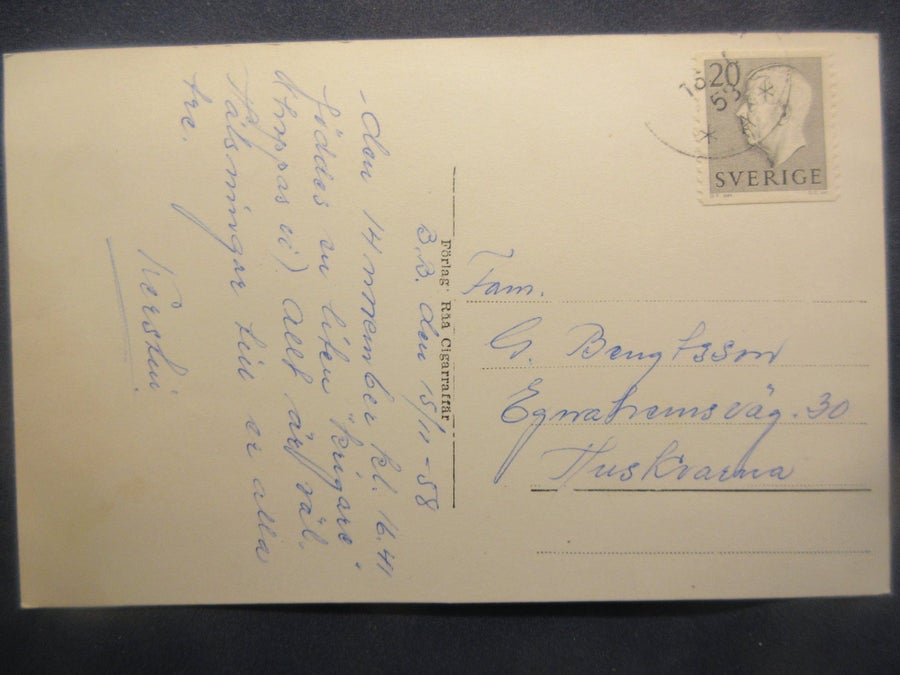 B.B. den 15/11 -58
Den 14 november kl. 16.41
föddes en liten "krigare"
(hoppas vi) allt är väl.
Hälsningar till er alla
tre.
Kerstin.
Förlag: Råå Cigarraffär
20
SVERIGE
18
58
Fam.
G. Bengtsson
Egnahemsväg. 30
Huskvarna